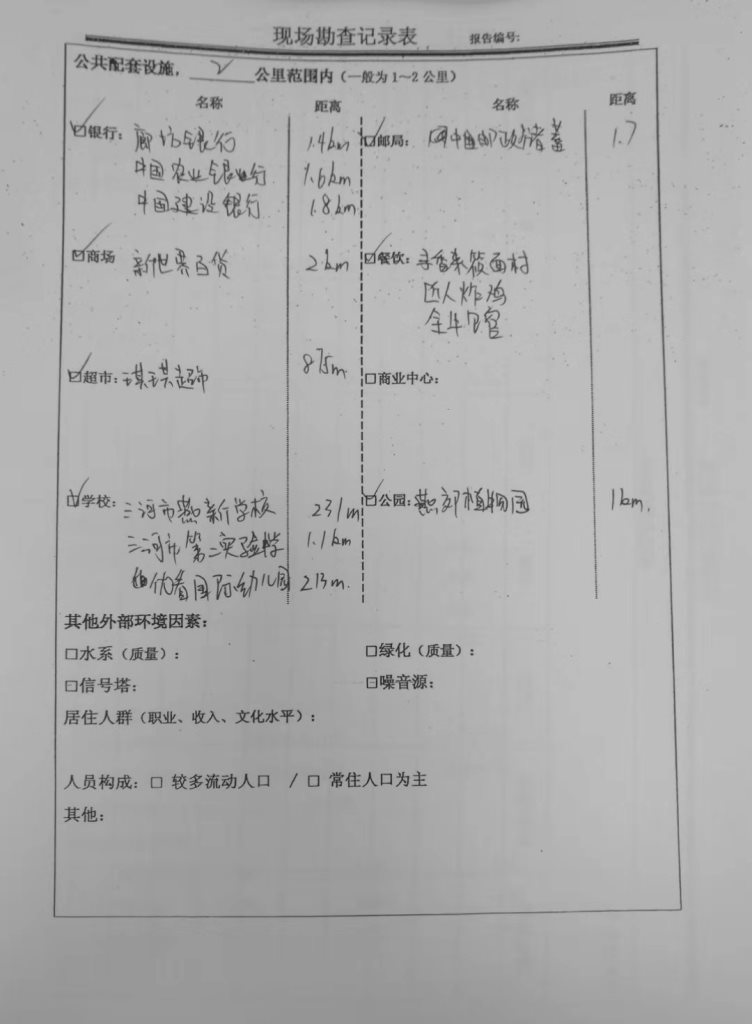 现场勘查记录表 报告编号:
公共配套设施, 2 公里范围内（一般为1~2公里）
名称 距离 名称 距离
☑银行: 廊坊银行 1.4km ☑邮局: 中国邮政储蓄 1.7
中国农业银行 1.6km
中国建设银行 1.8km
☑商场 新世界百货 2km ☑餐饮: 寻香来莜面村
匠人炸鸡
☑超市: 琪琪超市 875m □商业中心:
☑学校: 三河市燕新学校 231m ☑公园: 燕郊植物园 1km.
三河市第二实验小学 1.1km
国际幼儿园 213m.
其他外部环境因素:
□水系（质量）: □绿化（质量）:
□信号塔: □噪音源:
居住人群（职业、收入、文化水平）:
人员构成: □ 较多流动人口 / □ 常住人口为主
其他: